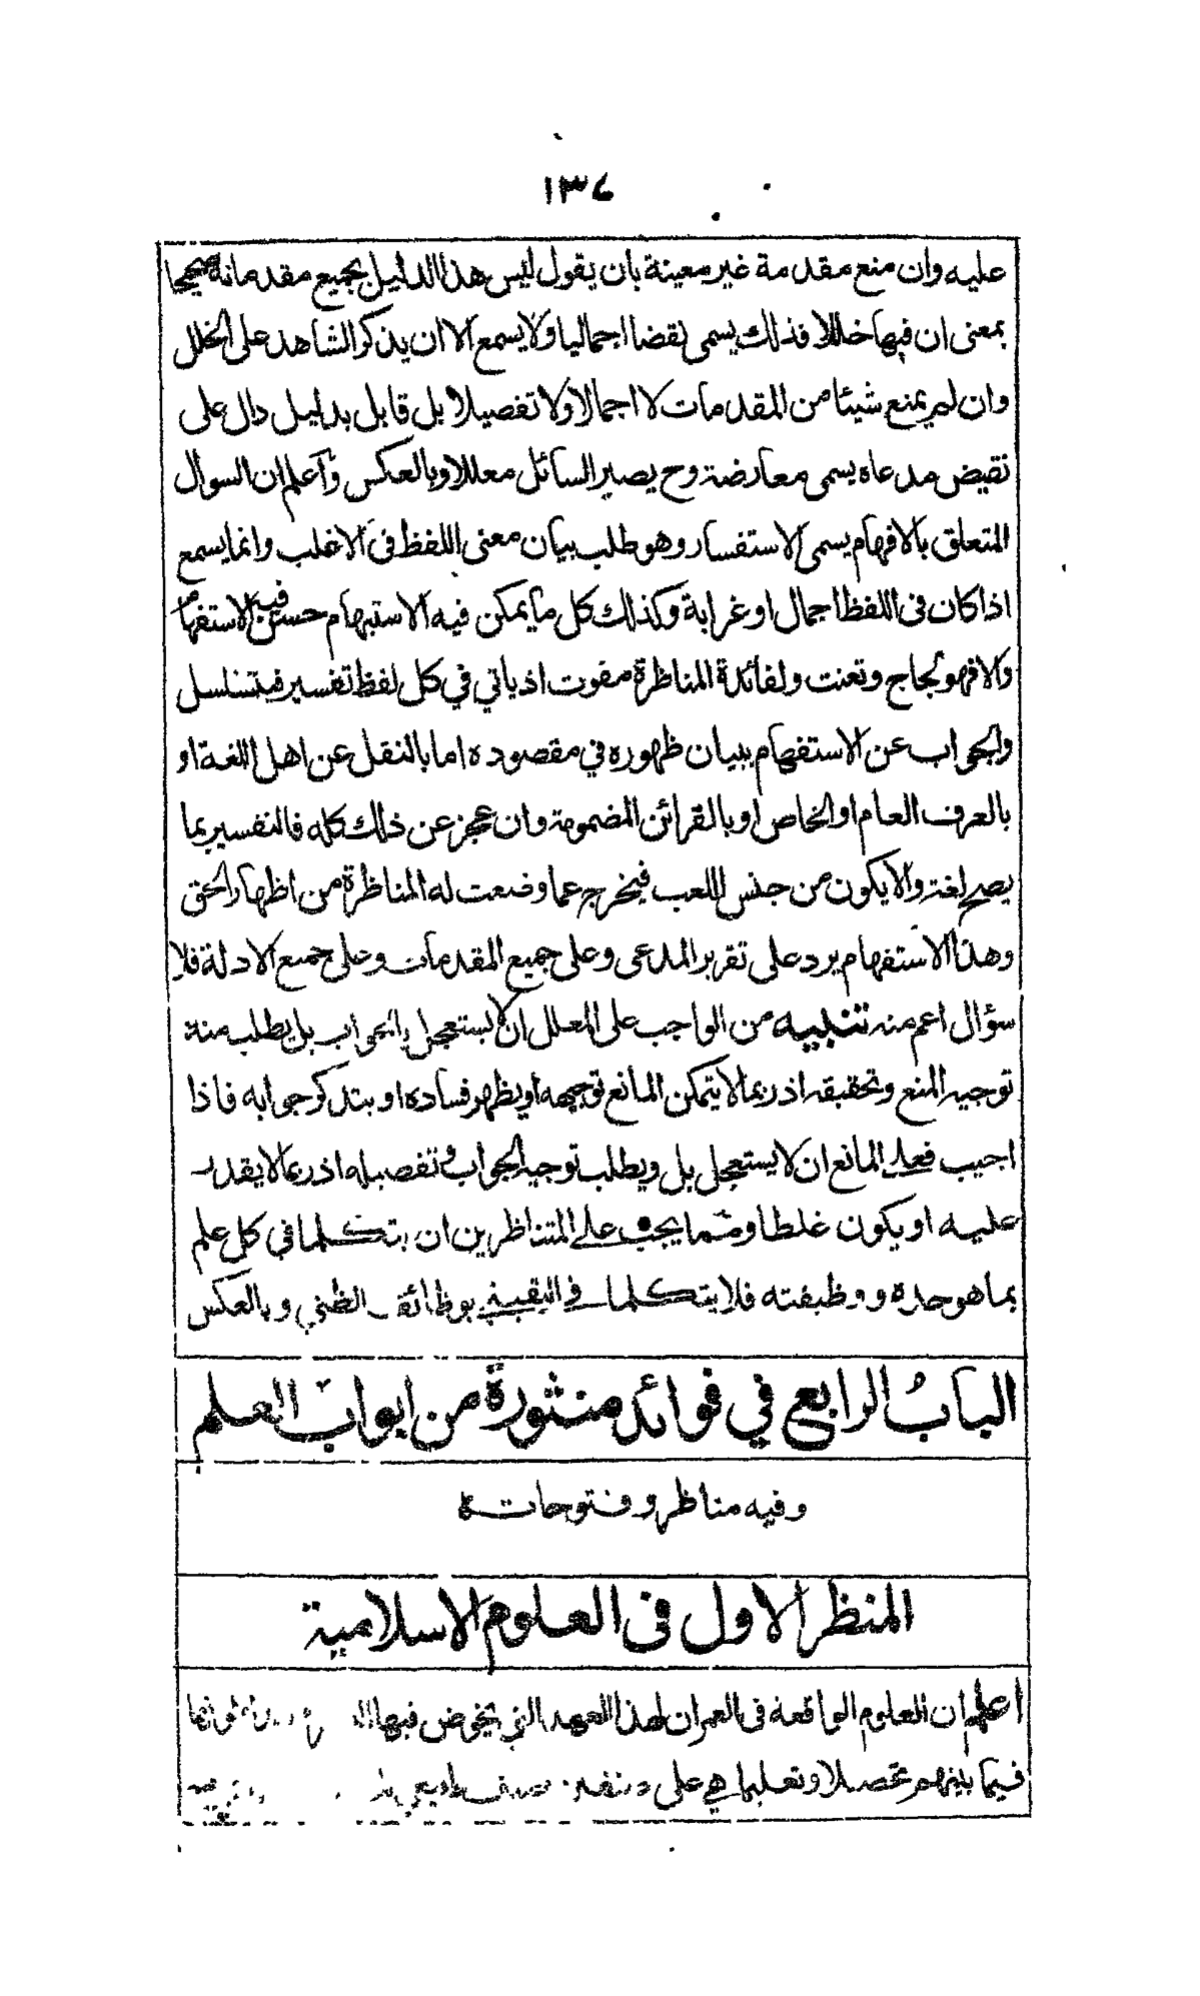 ١٣٤
عليه وان منع مقدمة غير معينة بان يقول ليس هذا الدليل بجميع مقدماته صحيحا
بمعنى ان فيها خللا فذلك يسمى نقضا اجماليا ولا يسمع الا ان يذكر الشاهد على الخلل
وان لم يمنع شيئا من المقدمات لا اجمالا ولا تفصيلا بل قابل بدليل دال على
نقيض مدعاه يسمى معارضة وح يصير السائل معللا وبالعكس وَاَعلم ان السوال
المتعلق بالافهام يسمى الاستفسار وهو طلب بيان معنى اللفظ فى الاغلب وانما يسمع
اذا كان فى اللفظ اجمال او غرابة وكذلك كل ما يمكن فيه الاستبهام حسن فيه الاستفهام
والا فهو لجاج وتعنت ولفائدة المناظرة مفوت اذ ياتي في كل لفظ تفسير فيتسلسل
والجواب عن الاستفهام ببيان ظهوره في مقصوده اما بالنقل عن اهل اللغة او
بالعرف العام او الخاص او بالقرائن المضمومة وان عجز عن ذلك كله فالتفسير بما
يصح لغة والا يكون من جنس اللعب فيخرج عما وضعت له المناظرة من اظهار الحق
وهذا الاستفهام يرد على تقرير المدعى وعلى جميع المقدمات وعلى جميع الادلة فلا
سؤال اعم منه تنبيه من الواجب على المعلل ان لا يستعجل بالجواب بل يطلب منه
توجيه المنع وتحقيقه اذ ربما لا يتمكن المانع توجيهه او يظهر فساده او يتذكر جوابه فاذا
اجيب فعلى المانع ان لا يستعجل بل ويطلب توجيه الجواب وتفصيله اذ ربما لا يقدر
عليه او يكون غلطا ومما يجب على المتناظرين ان يتكلما في كل علم
بما هو حده ووظيفته فلا يتكلما في اليقيني بوظائف الظني وبالعكس
الباب الرابع في فوائد منثورة من ابواب العلم
وفيه مناظر وفتوحات
المنظر الاول فى العلوم الاسلامية
اعلم ان العلوم الواقعة فى العمران لهذا العهد التي يخوض فيها
فيما بينهم تحصيلا وتعليما هي على صنفين صنف طبيعي